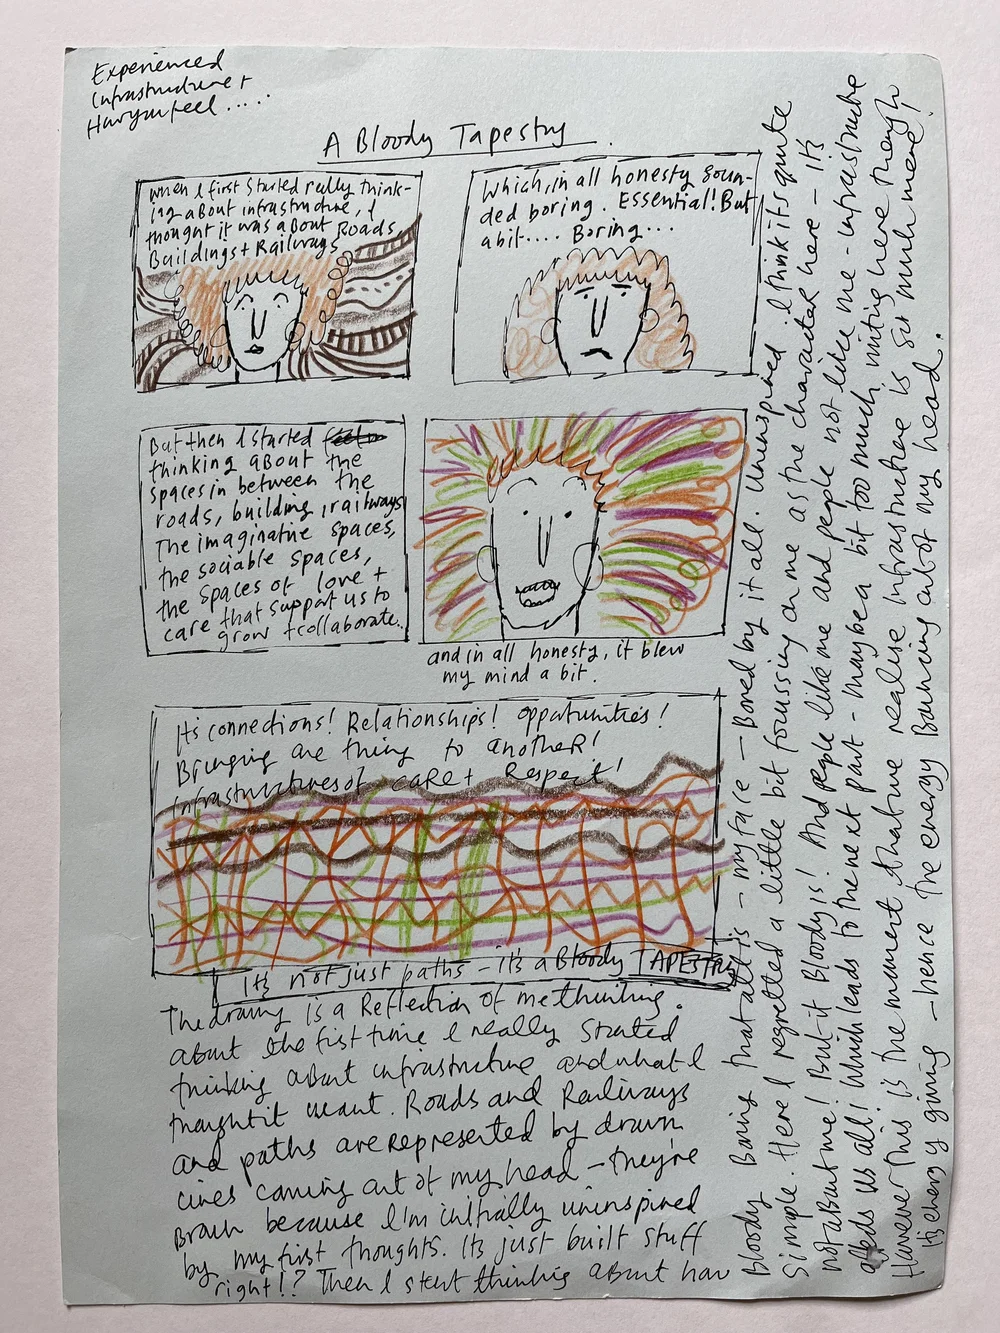 Experienced
Infrastructure +
How you feel .....
A Bloody Tapestry.
When I first started really think-
ing about infrastructure, I
thought it was about Roads,
Buildings + Railways
Which, in all honesty soun-
ded boring. Essential! But
a bit.... Boring...
But then I started
thinking about the
spaces in between the
roads, building, railways
The imaginative spaces,
the sociable spaces,
the spaces of love +
care that support us to
grow + collaborate..
and in all honesty, it blew
my mind a bit.
It's connections! Relationships! oppatunities!
Bringing are thing to another!
Infrastructures of care + Respect!
It's not just paths - it's a Bloody TAPESTRY
The drawing is a Reflection of me thinking.
about the first time I really started
thinking about infrastructure and what I
thought it meant. Roads and Railways
and paths are represented by drawn
lines coming out of my head - they're
Brown because I'm initially uninspired
by my first thoughts. It's just built stuff
right!? Then I start thinking about how
bloody Boring that all is - my face - Bored by it all. Uninspired. I think its quite
Simple. Here I regretted a little bit focussing on me as the character here - it's
not about me! But it Bloody is! And people like me and people not like me - infrastructure
affects us all! Which leads to the next part - maybe a bit too much writing here though
However This is the moment that we realise infrastructure is so much more!
It's energy giving - hence the energy Bouncing out of my head.